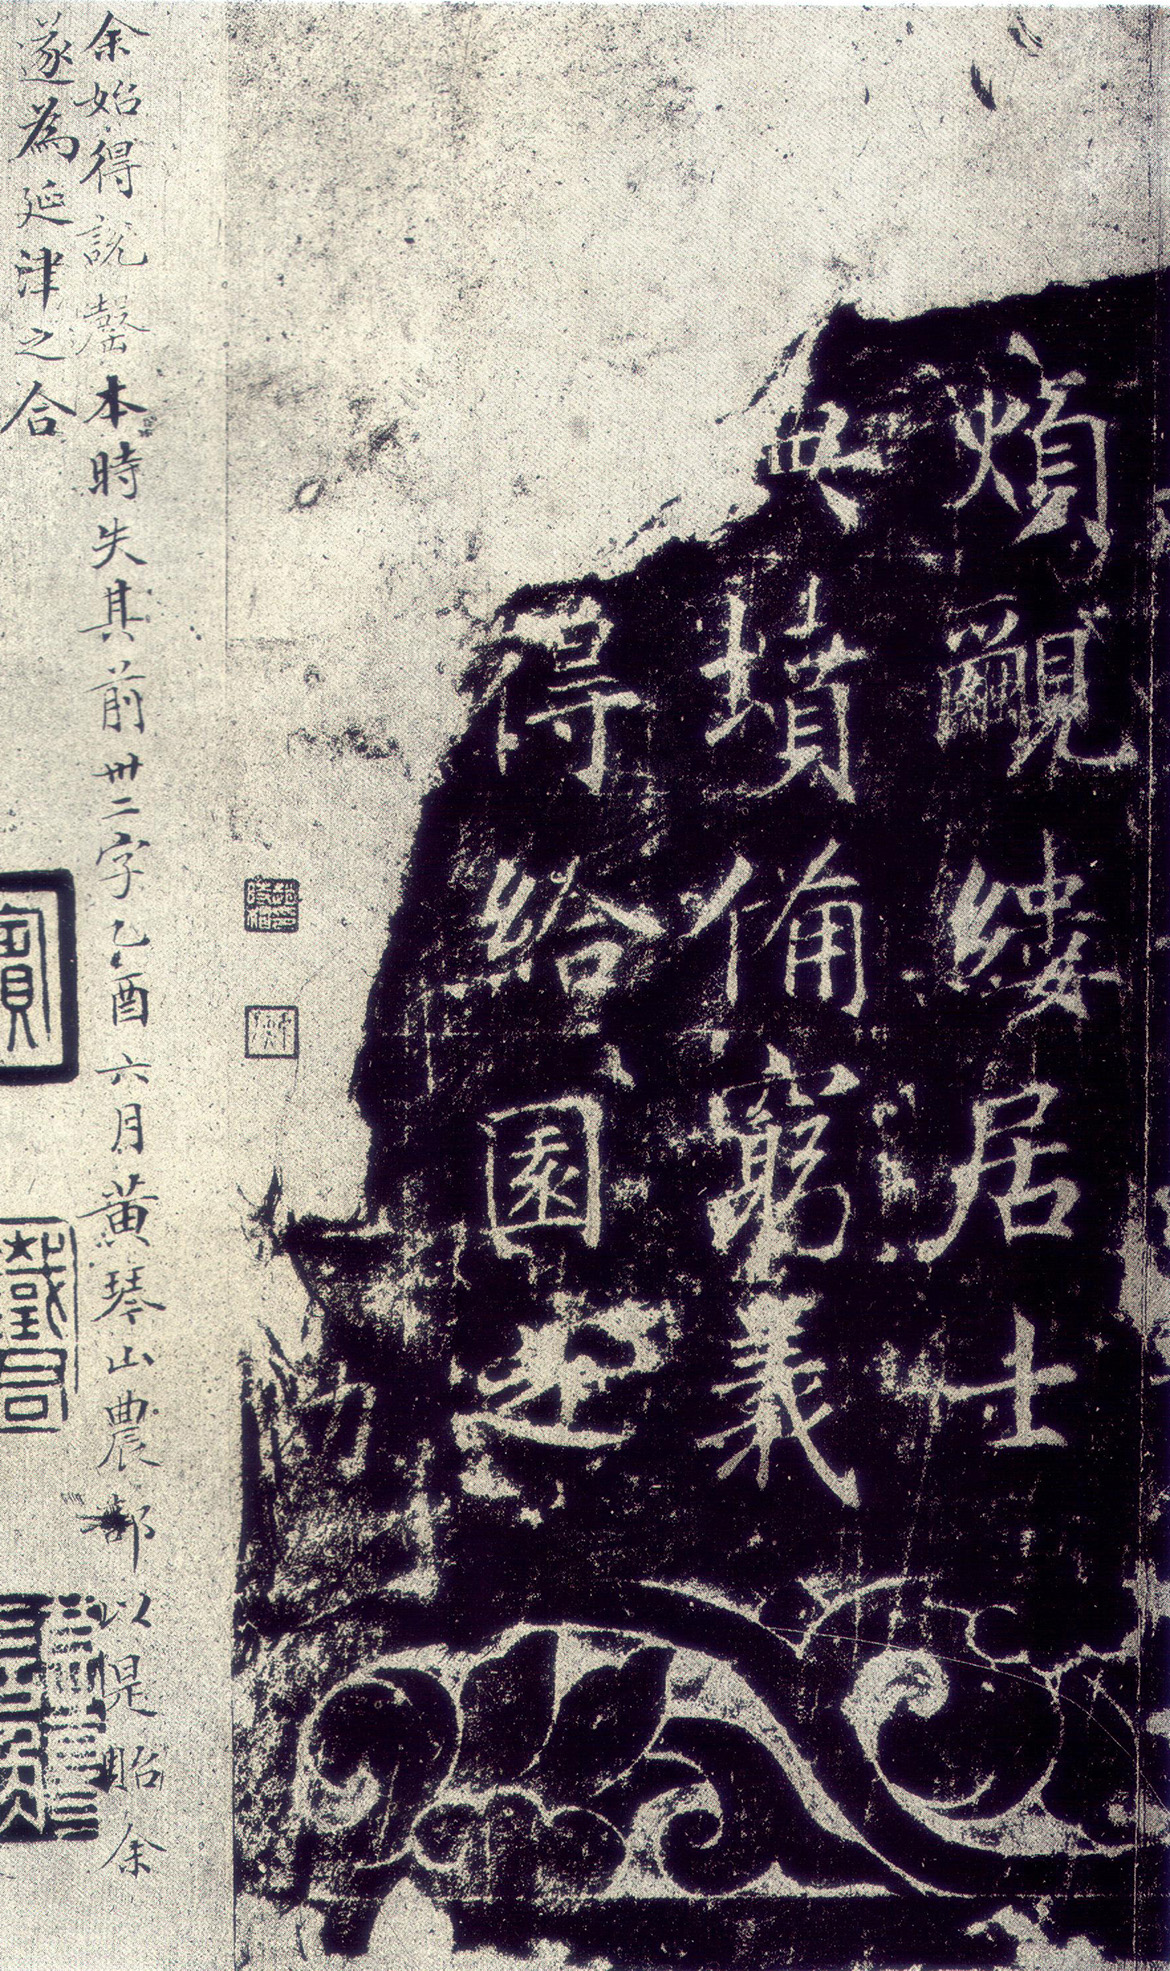 煩覼縷居士
典墳備窮義
得給園之
余始得說罄本時失其前卅二字乙酉六月黃琴山農部以是貽余
遂為延津之合